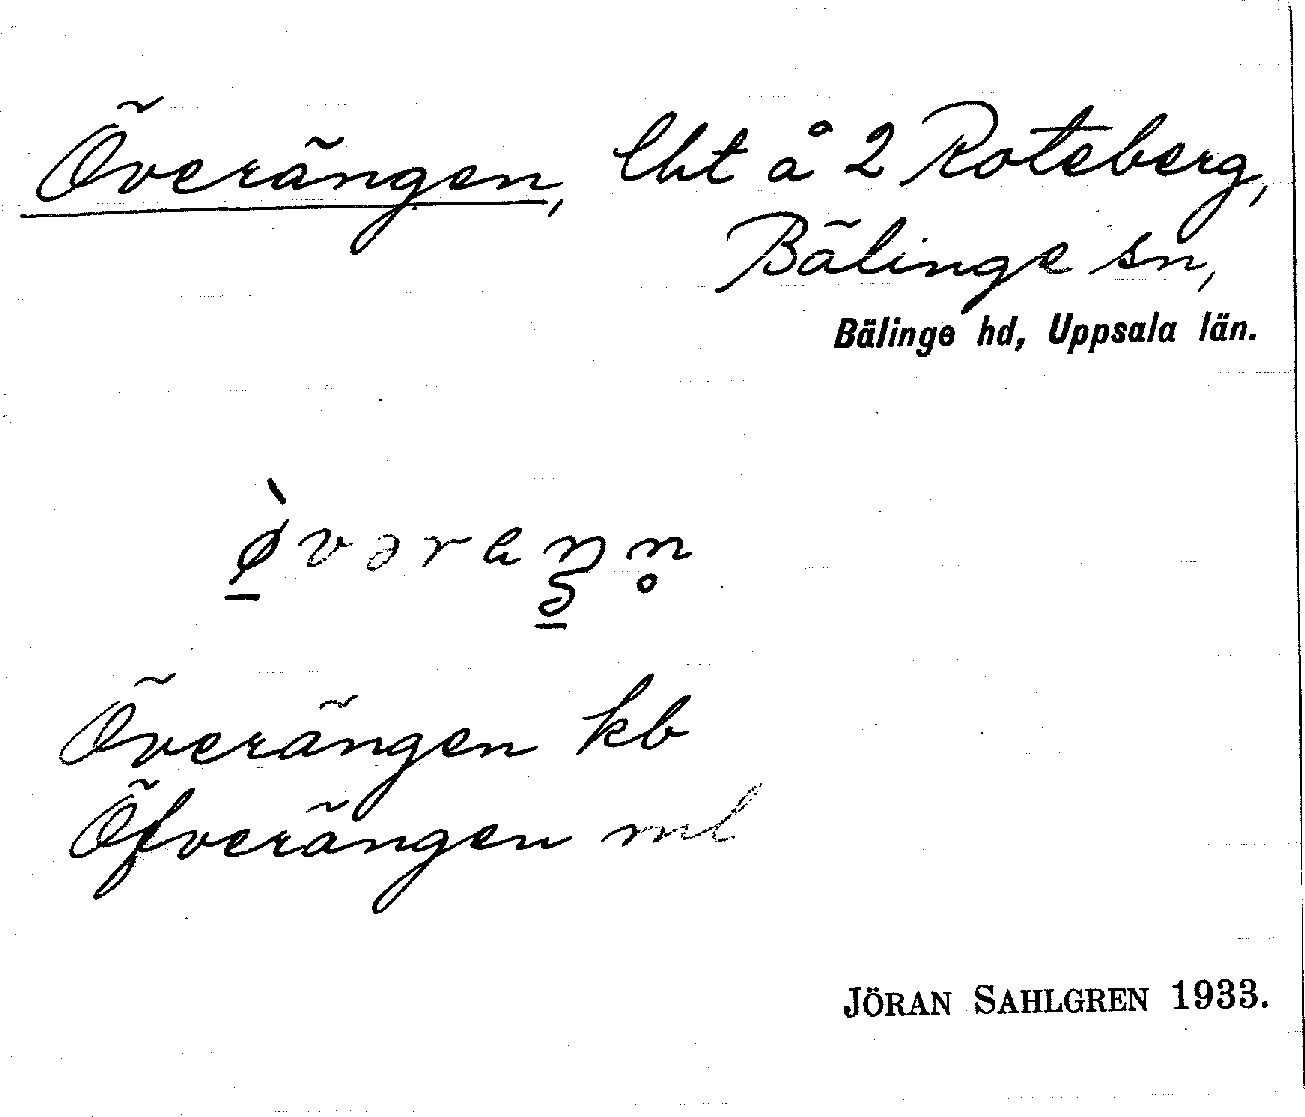 Överängen, lht å 2 Roteberg,
Bälinge sn,
Bälinge hd, Uppsala län.
Överängen kb
Öfverängen ml
JÖRAN SAHLGREN 1933.